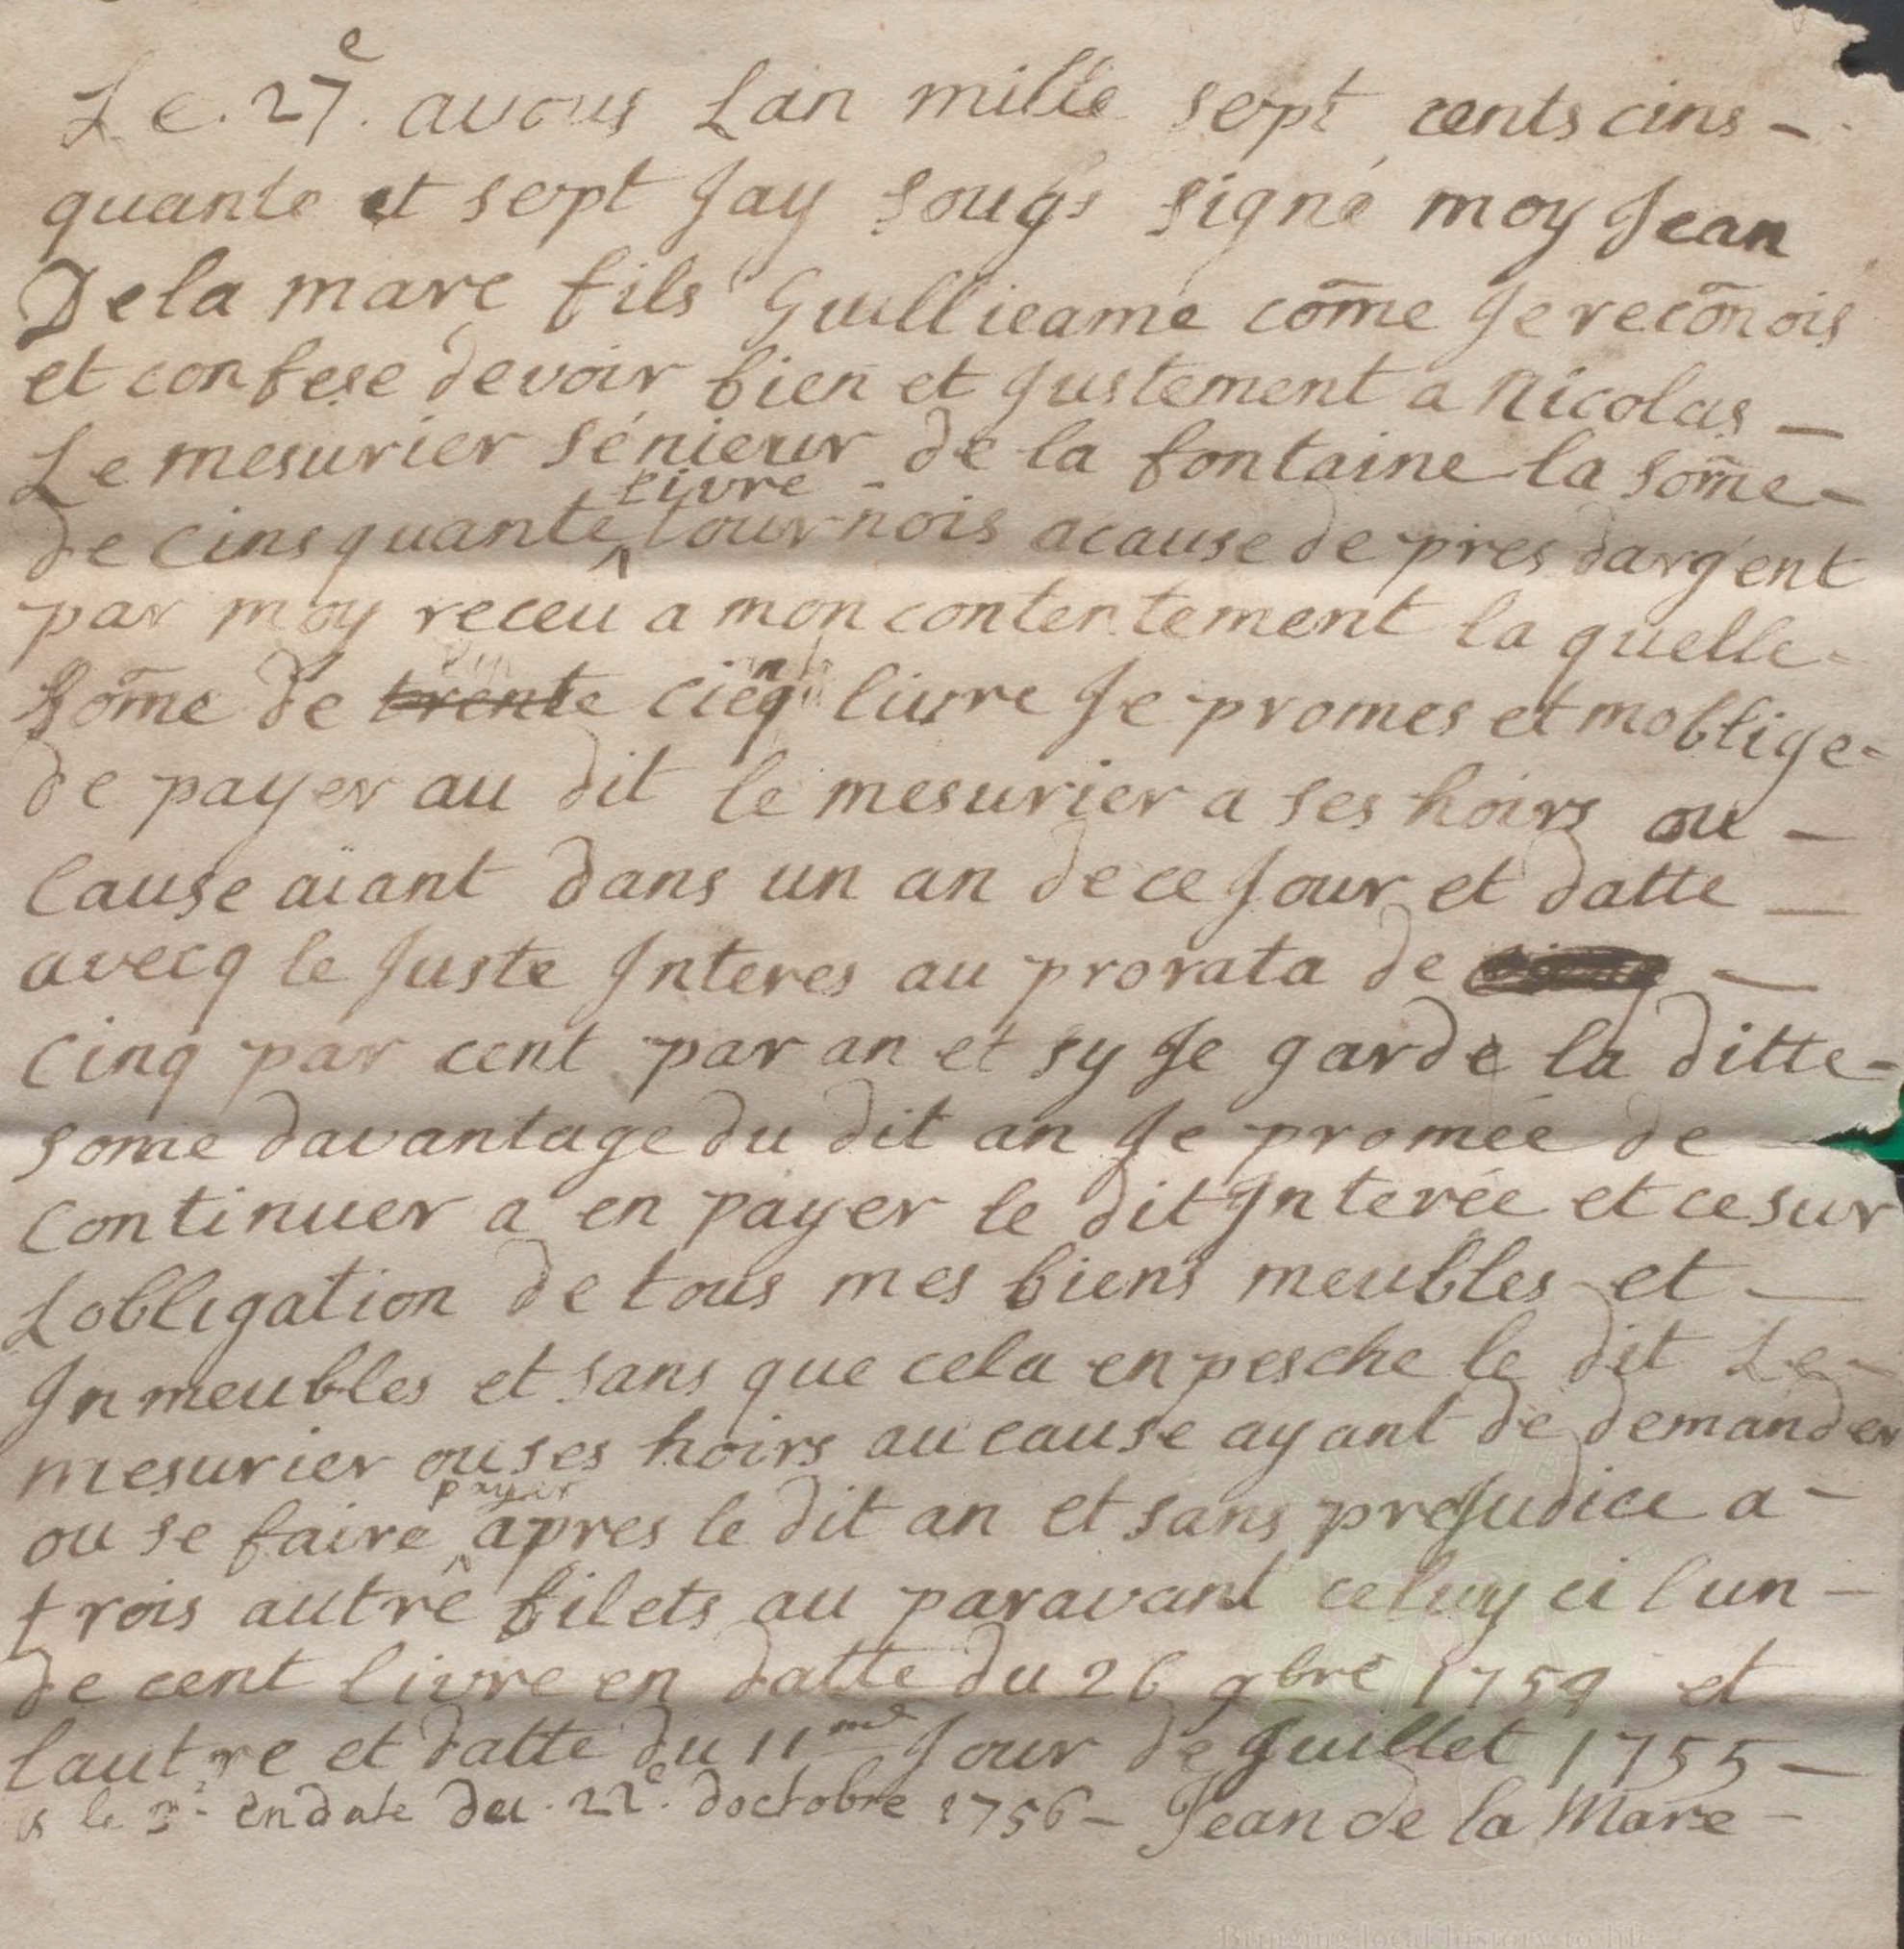 Le. 27e. avous Lan mille sept cents cins -
quante et sept Jay sougs signé moy Jean
Dela mare fils Guillieame cõme Je recõnois
et confese devoir bien et Justement a Nicolas -
Le mesurier sénieur de la fontaine la sõme -
livre -
de cinsquante ^ tournois acause de pres dargent
par moy receu a mon contentement la quelle -
sõme de trente cinq livre Je promes et moblige -
de payer au dit le mesurier a ses hoirs ou -
Cause aïant dans un an de ce Jour et datte -
avecq le Juste Interes au prorata de -
Cinq par cent par an et sy Je garde la ditte -
some davantage du dit an Je promée de -
Continuer a en payer le dit Interée et ce sur
Lobligation de tous mes biens meubles et -
Inmeubles et sans que cela enpesche le dit Le -
mesurier ou ses hoirs au cause ayant de demander
payer
ou se faire ^ apres le dit an et sans preJudice a -
trois autre filets au paravant celuy ci lun -
de cent livre en datte du 26 9bre 1754 et
lautre et datte du 11me Jour de Juillet 1755 -
le 3e en date du . 22e. doctobre 1756 - Jean de la Mare -
Bringing local history to life